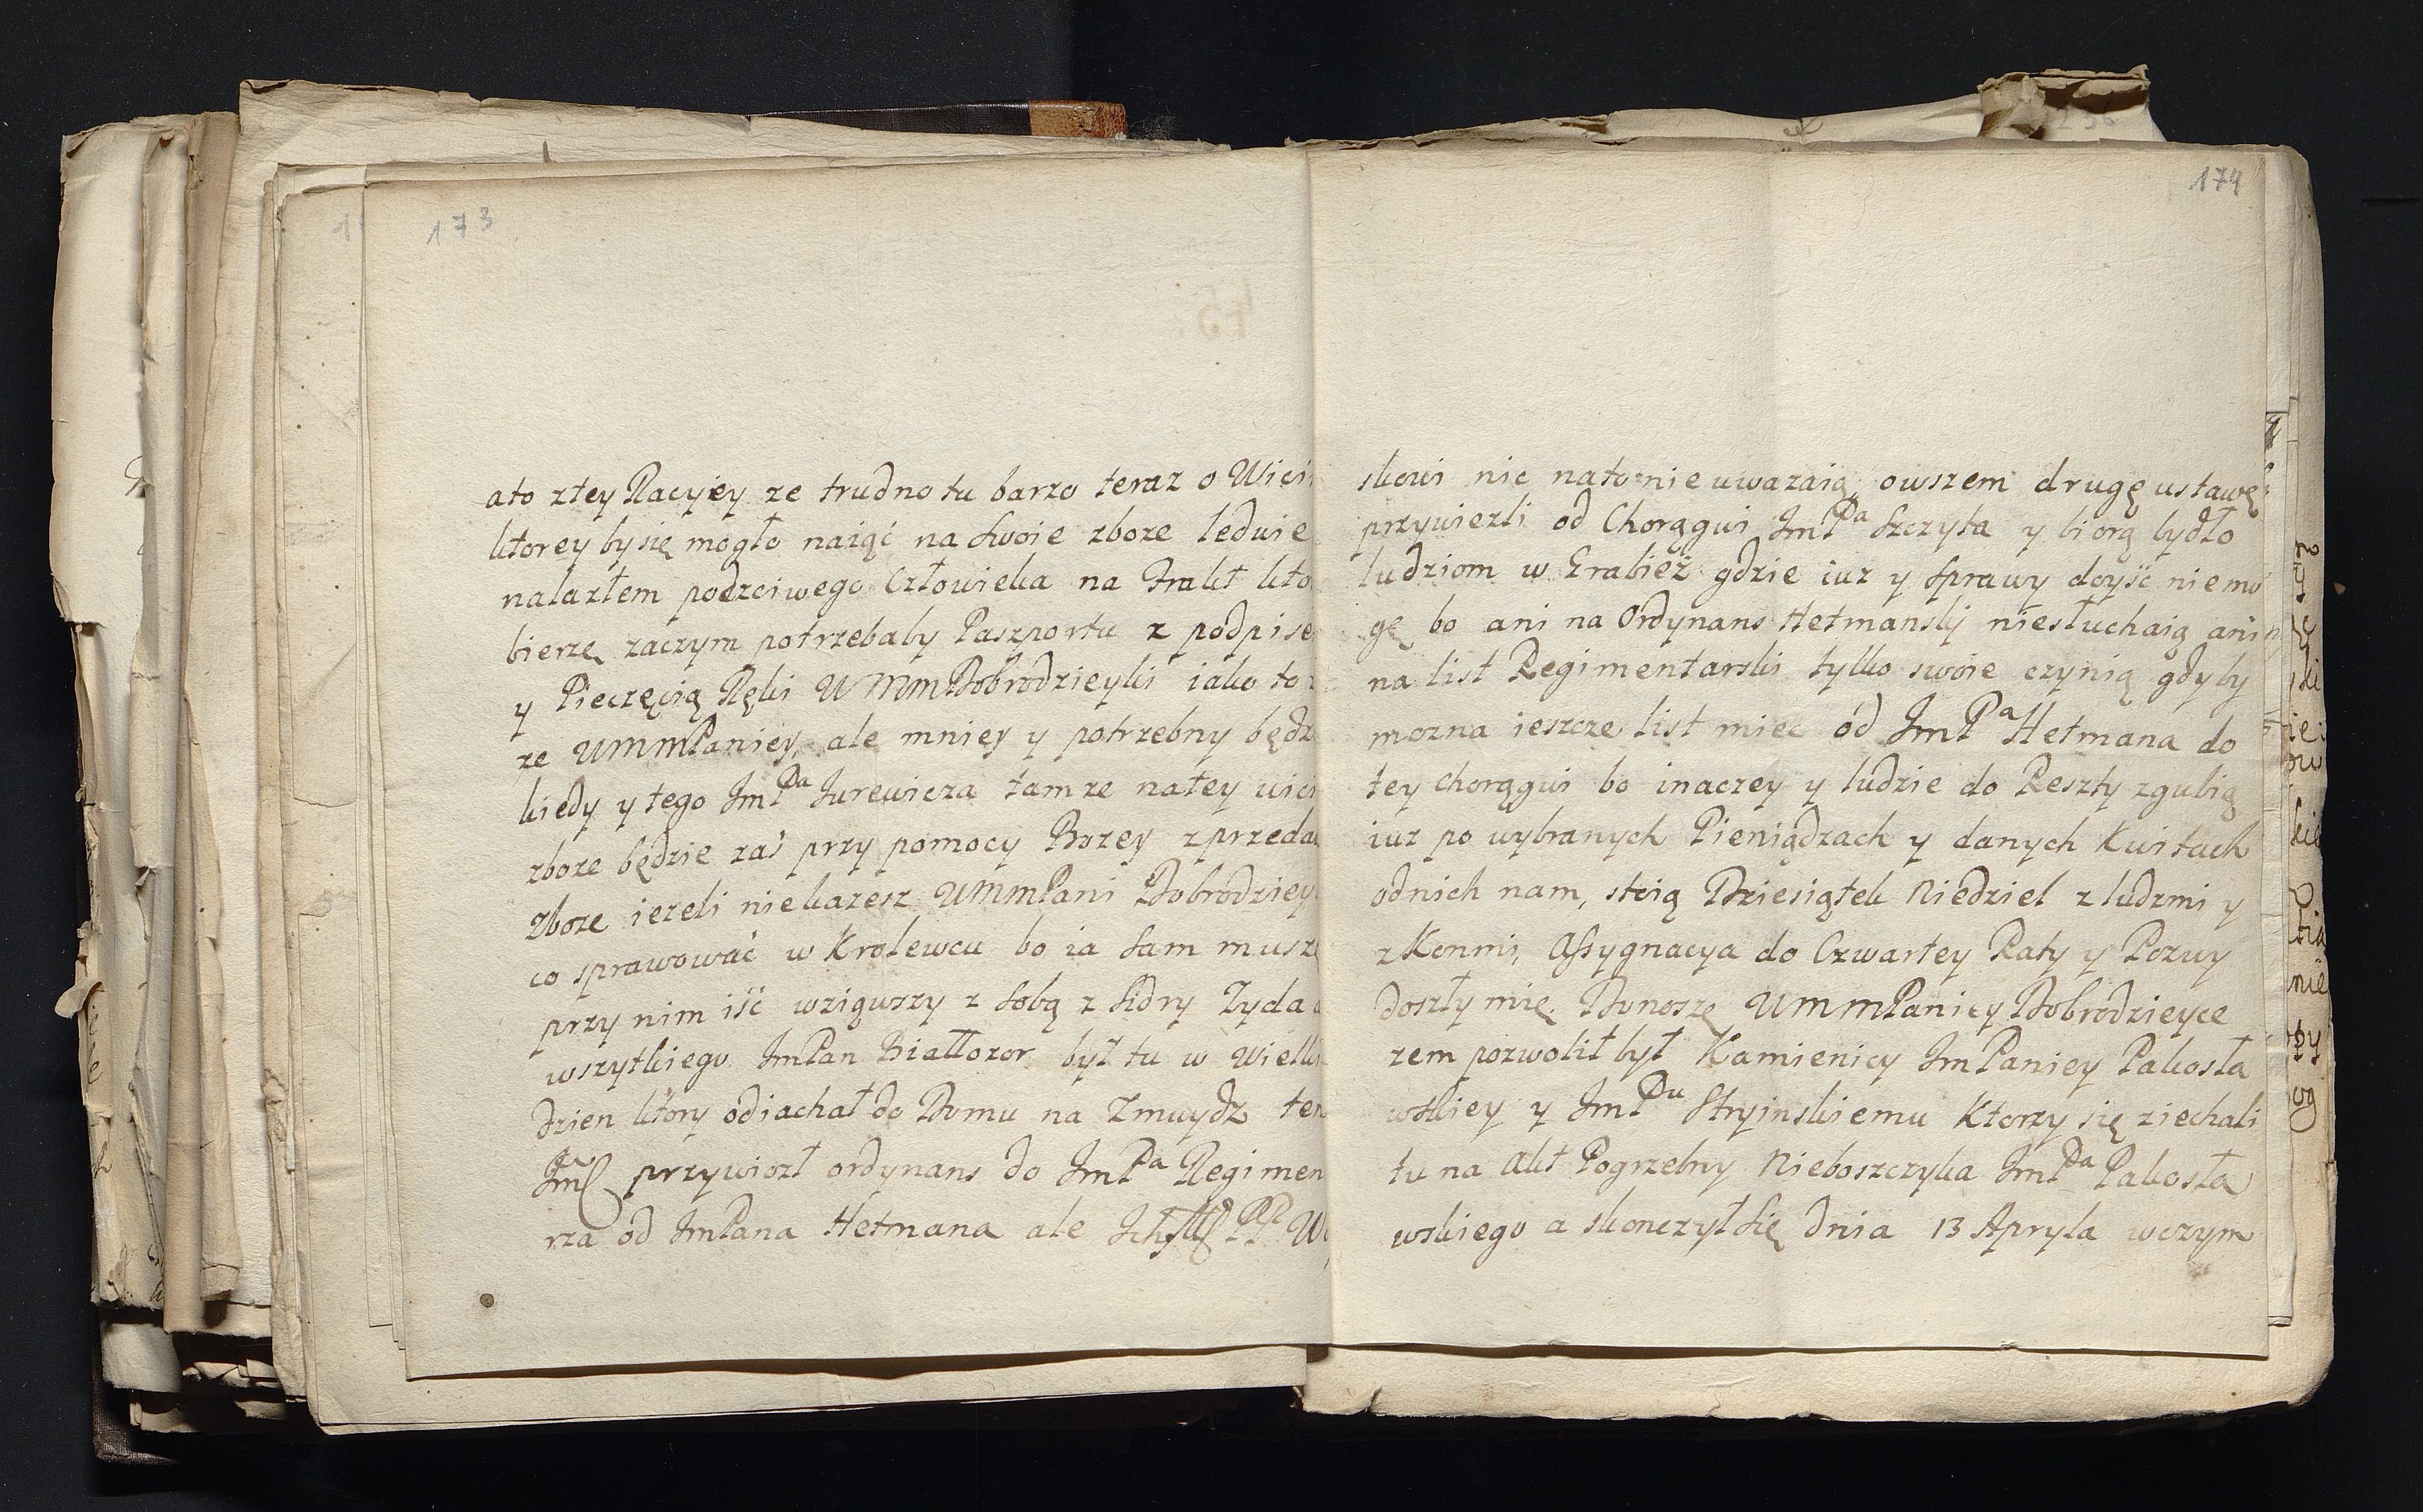 173
ato ztey Racyiey ze trudno tu barzo teraz o Wici
ktorey by się mogło naiąć na swoie zboze ledwie
nalazłem podrciwego Człowieka na Frakt kto
bierze zaczym potrzebaby Paszportu z podpise
y Pieczęcią Ręki UMMDobrodzieyki iako to
ze UMMPaniey, ale mniey y potrzebny będz
kiedy y tego ImPa Jurewicza tamze natey wici
zboze będzie zaś przy pomocy Bozey zprzeda
zboze iezeli niekazesz UMMPani Dobrodziey
co sprawować w Krolewcu bo ia sam musz
przy nim iść wziąwszy z sobą z Sidry Zyda
wszytkiego ImPan Białłozor był tu w Wielki
Dzien ktory odiachał do Domu na Zmuydz ten
Jm przywiozł ordynans do ImPa Regimen
rza od ImPana Hetmana ale Ichm PP W
174
skowi nic nato nie uwazaią, owszem drugę ustawę
przywiezli od Chorągwi ImPa Szczyta y biorą bydło
ludziom w Grabież gdzie iuz y sprawy doyść niemo
gę bo ani na Ordynans Hetmanski niesłuchaią ani
na list Regimentarski tylko swoie czynią gdyby
mozna ieszcze list miec od ImPa Hetmana do
tey chorągwi bo inaczey y ludzie do Reszty zgubią
iuz po wybranych Pieniądzach y danych Kwitach
odnich nam, stoią Dziesiątek Niedziel z ludzmi y
z Konmi, Assygnacya do Czwartey Raty y Pozwy
doszły mię. Donoszę UMMPaniey Dobrodzieyce
zem pozwolił był Kamienicy ImPaniey Pakosła
wskiey y ImPu Stryinskiemu Ktorzy się ziechali
tu na Akt Pogrzebny Nieboszczyka ImPa Pakosła
wskiego a skonczył się dnia 13 Apryla wczym